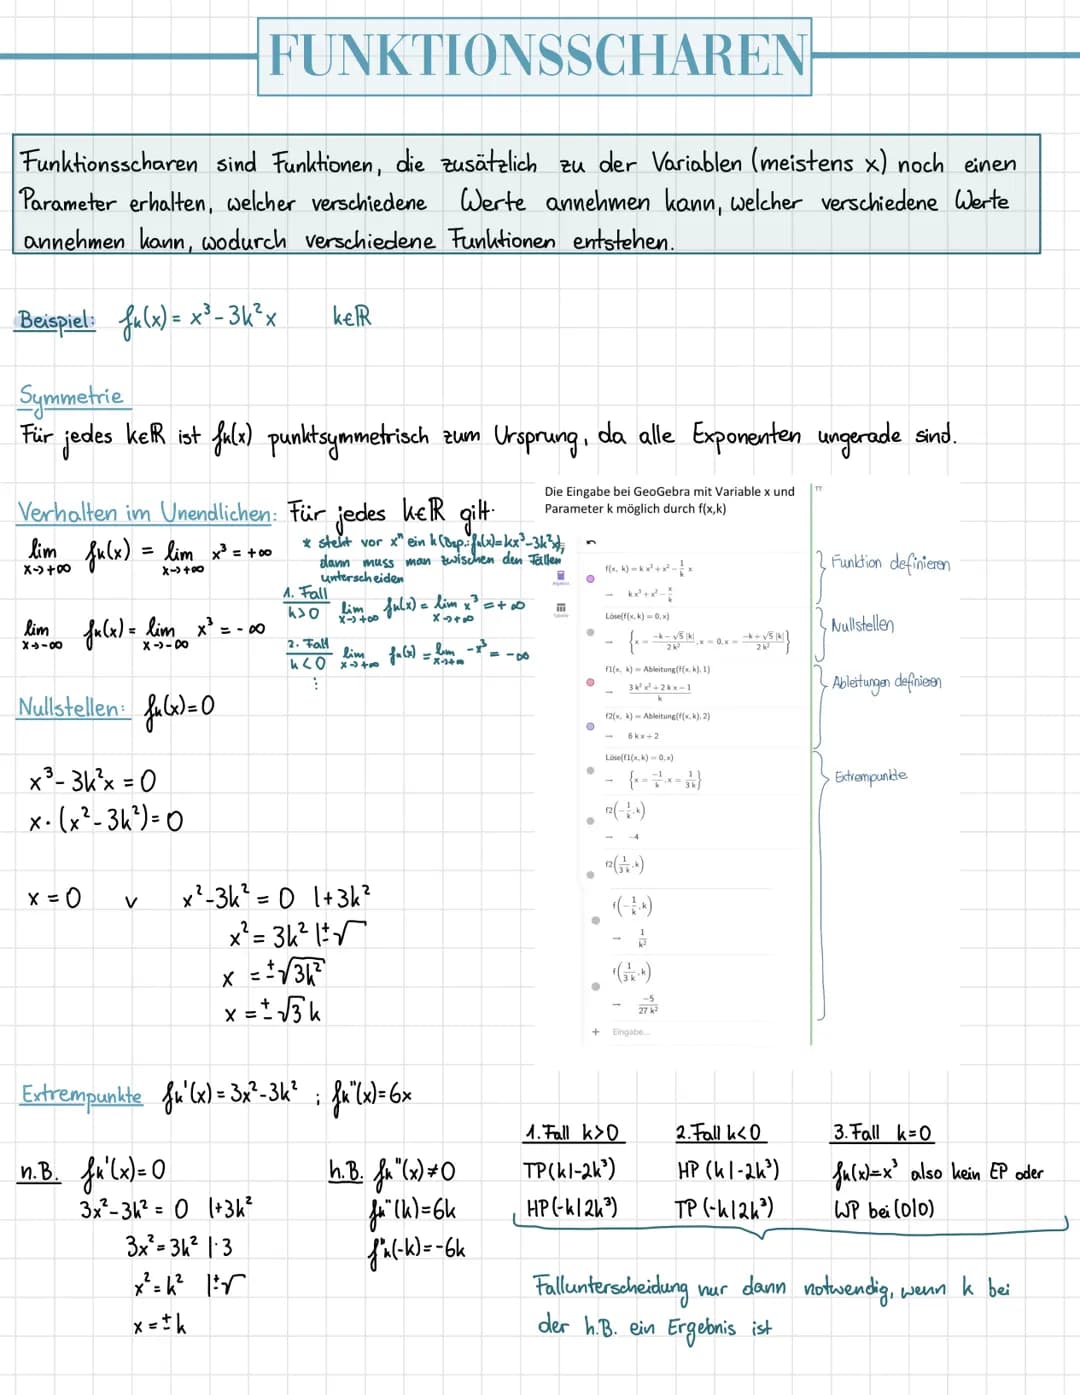 FUNKTIONSSCHAREN
Funktionsscharen sind Funktionen, die zusätzlich zu der Variablen (meistens x) noch einen
Parameter erhalten, welcher verschiedene Werte annehmen kann, welcher verschiedene Werte
annehmen kann, wodurch verschiedene Funktionen entstehen.
Beispiel: fₖ(x) = x³ - 3k²x k∈ℝ
Symmetrie
Für jedes k∈ℝ ist fₖ(x) punktsymmetrisch zum Ursprung, da alle Exponenten ungerade sind.
Verhalten im Unendlichen: Für jedes k∈ℝ gilt:
lim x→+∞ fₖ(x) = lim x→+∞ x³ = +∞
lim x→-∞ fₖ(x) = lim x→-∞ x³ = -∞
* steht vor xⁿ ein k (Bsp.: fₖ(x)=kx³-3k²x),
dann muss man zwischen den Fällen
unterscheiden
1. Fall
k>0 lim x→+∞ fₖ(x) = lim x→+∞ x³ = +∞
2. Fall
k<0 lim x→+∞ fₖ(x) = lim x→+∞ -x³ = -∞
⋮
Nullstellen: fₖ(x)=0
x³ - 3k²x = 0
x · (x² - 3k²) = 0
x = 0 v x² - 3k² = 0 |+3k²
x² = 3k² |±√
x = ±√3k²
x = ±√3 k
Die Eingabe bei GeoGebra mit Variable x und
Parameter k möglich durch f(x,k)
f(x, k) = k x³ + x² - 1/k x
→ k x³ + x² - x/k
Löse(f(x, k) = 0, x)
→ {x = (-k - √5 |k|)/(2 k²), x = 0, x = (-k + √5 |k|)/(2 k²)}
f1(x, k) = Ableitung(f(x, k), 1)
→ (3 k² x² + 2 k x - 1)/k
f2(x, k) = Ableitung(f(x, k), 2)
→ 6 k x + 2
Löse(f1(x, k) = 0, x)
→ {x = -1/k, x = 1/(3 k)}
f2(-1/k, k)
→ -4
f2(1/(3 k), k)
f(-1/k, k)
→ 1/k²
f(1/(3 k), k)
→ -5/(27 k²)
+ Eingabe...
Funktion definieren
Nullstellen
Ableitungen definieren
Extrempunkte
Extrempunkte fₖ'(x) = 3x² - 3k² ; fₖ"(x) = 6x
n.B. fₖ'(x) = 0
3x² - 3k² = 0 |+3k²
3x² = 3k² |:3
x² = k² |±√
x = ±k
h.B. fₖ"(x) ≠ 0
fₖ"(k) = 6k
f"ₖ(-k) = -6k
1. Fall k>0
TP(k|-2k³)
HP(-k|2k³)
2. Fall k<0
HP (k|-2k³)
TP (-k|2k³)
3. Fall k=0
fₖ(x)=x³ also kein EP oder
WP bei (0|0)
Fallunterscheidung nur dann notwendig, wenn k bei
der h.B. ein Ergebnis ist